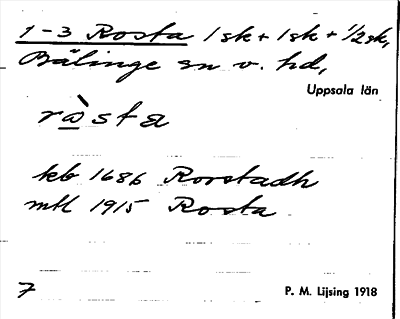 1-3 Rosta 1 sk + 1 sk + 1/2 sk,
Bälinge sn v. hd,
Uppsala län
ròsta
kb 1686 Roostadh
mtl 1915 Rosta
7
P. M. Lijsing 1918